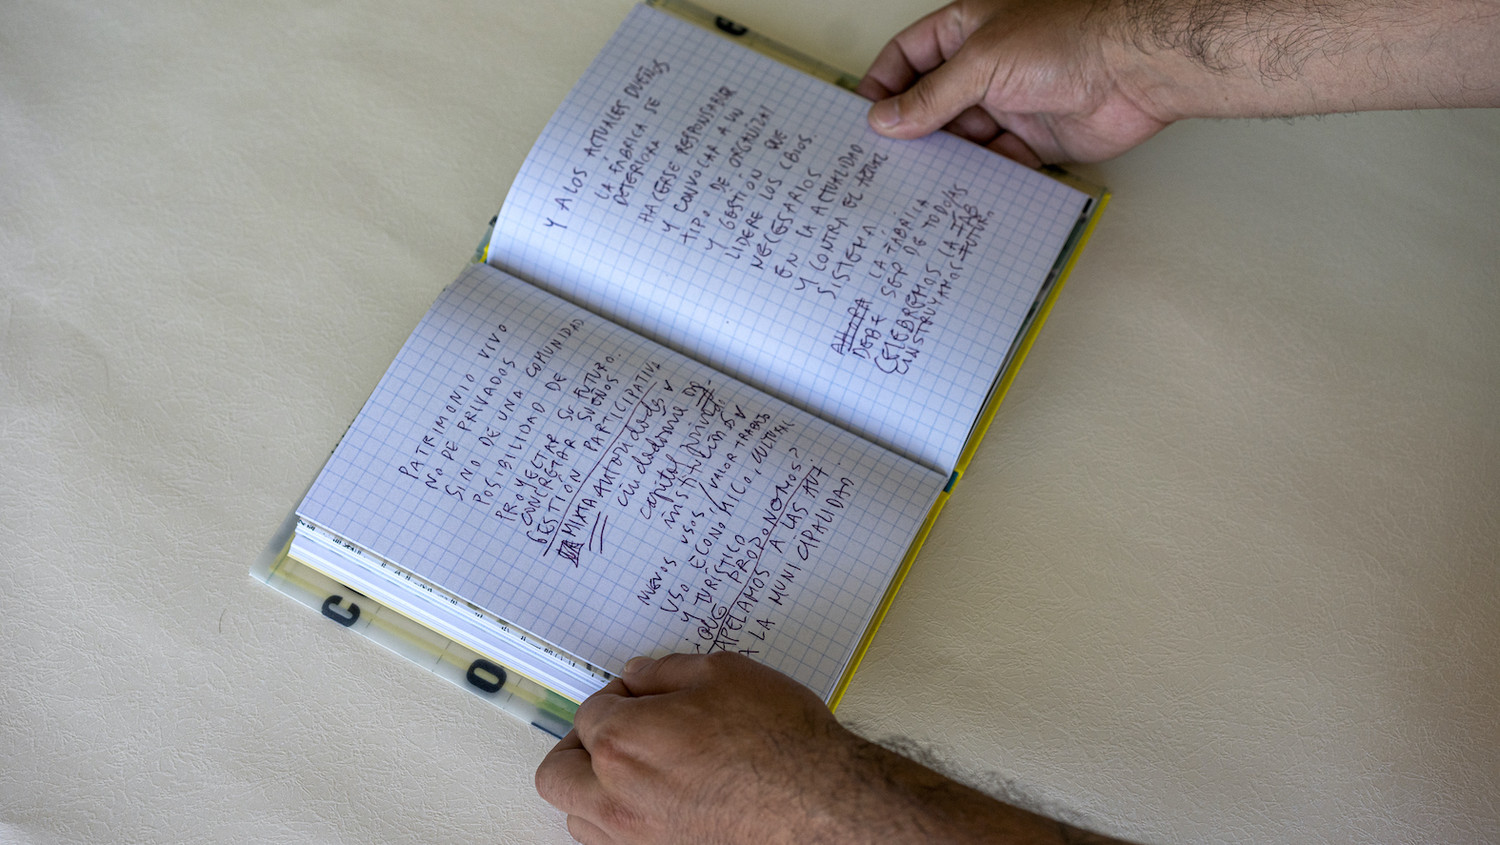 PATRIMONIO VIVO
NO DE PRIVADOS
SINO DE UNA COMUNIDAD
POSIBILIDAD DE
PROYECTAR SU FUTURO.
CONCRETAR SUEÑOS
GESTIÓN PARTICIPATIVA
MIXTA AUTORIDADES Y
ciudadanía
capital
institución
MENOS USOS / VALOR TRABAJO
USO ECONOMICO, CULTURAL
Y TURÍSTICO
¿QUE PROPONEMOS?
APELAMOS A LAS AUT
X LA MUNICIPALIDAD.
Y A LOS ACTUALES DUEÑOS
LA FÁBRICA SE
DETERIORA
HACERSE RESPONSABLE
Y CONVOCAR A UN
TIPO DE ORGANIZA!
Y GESTIÓN QUE
LIDERE LOS CBIOS.
NECESARIOS
EN LA ACTUALIDAD
Y CONTRA EL ACTUAL
SISTEMA.
AHORA LA FÁBRICA
DEBE SER DE TODO/AS
CELEBREMOS LA FAB
FUTUR.
C
O